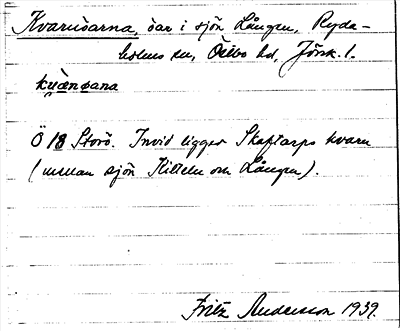 Kvarnöarna, öar i sjön Lången, Ryda-
holms sn, Östbo hd, Jönk. l.
kvὰ̀ɳøana
Ö 18 Storö. Invid ligger Skaftarps kvarn
(mellan sjön Hillen och Lången).
Fritz Andersson 1939.